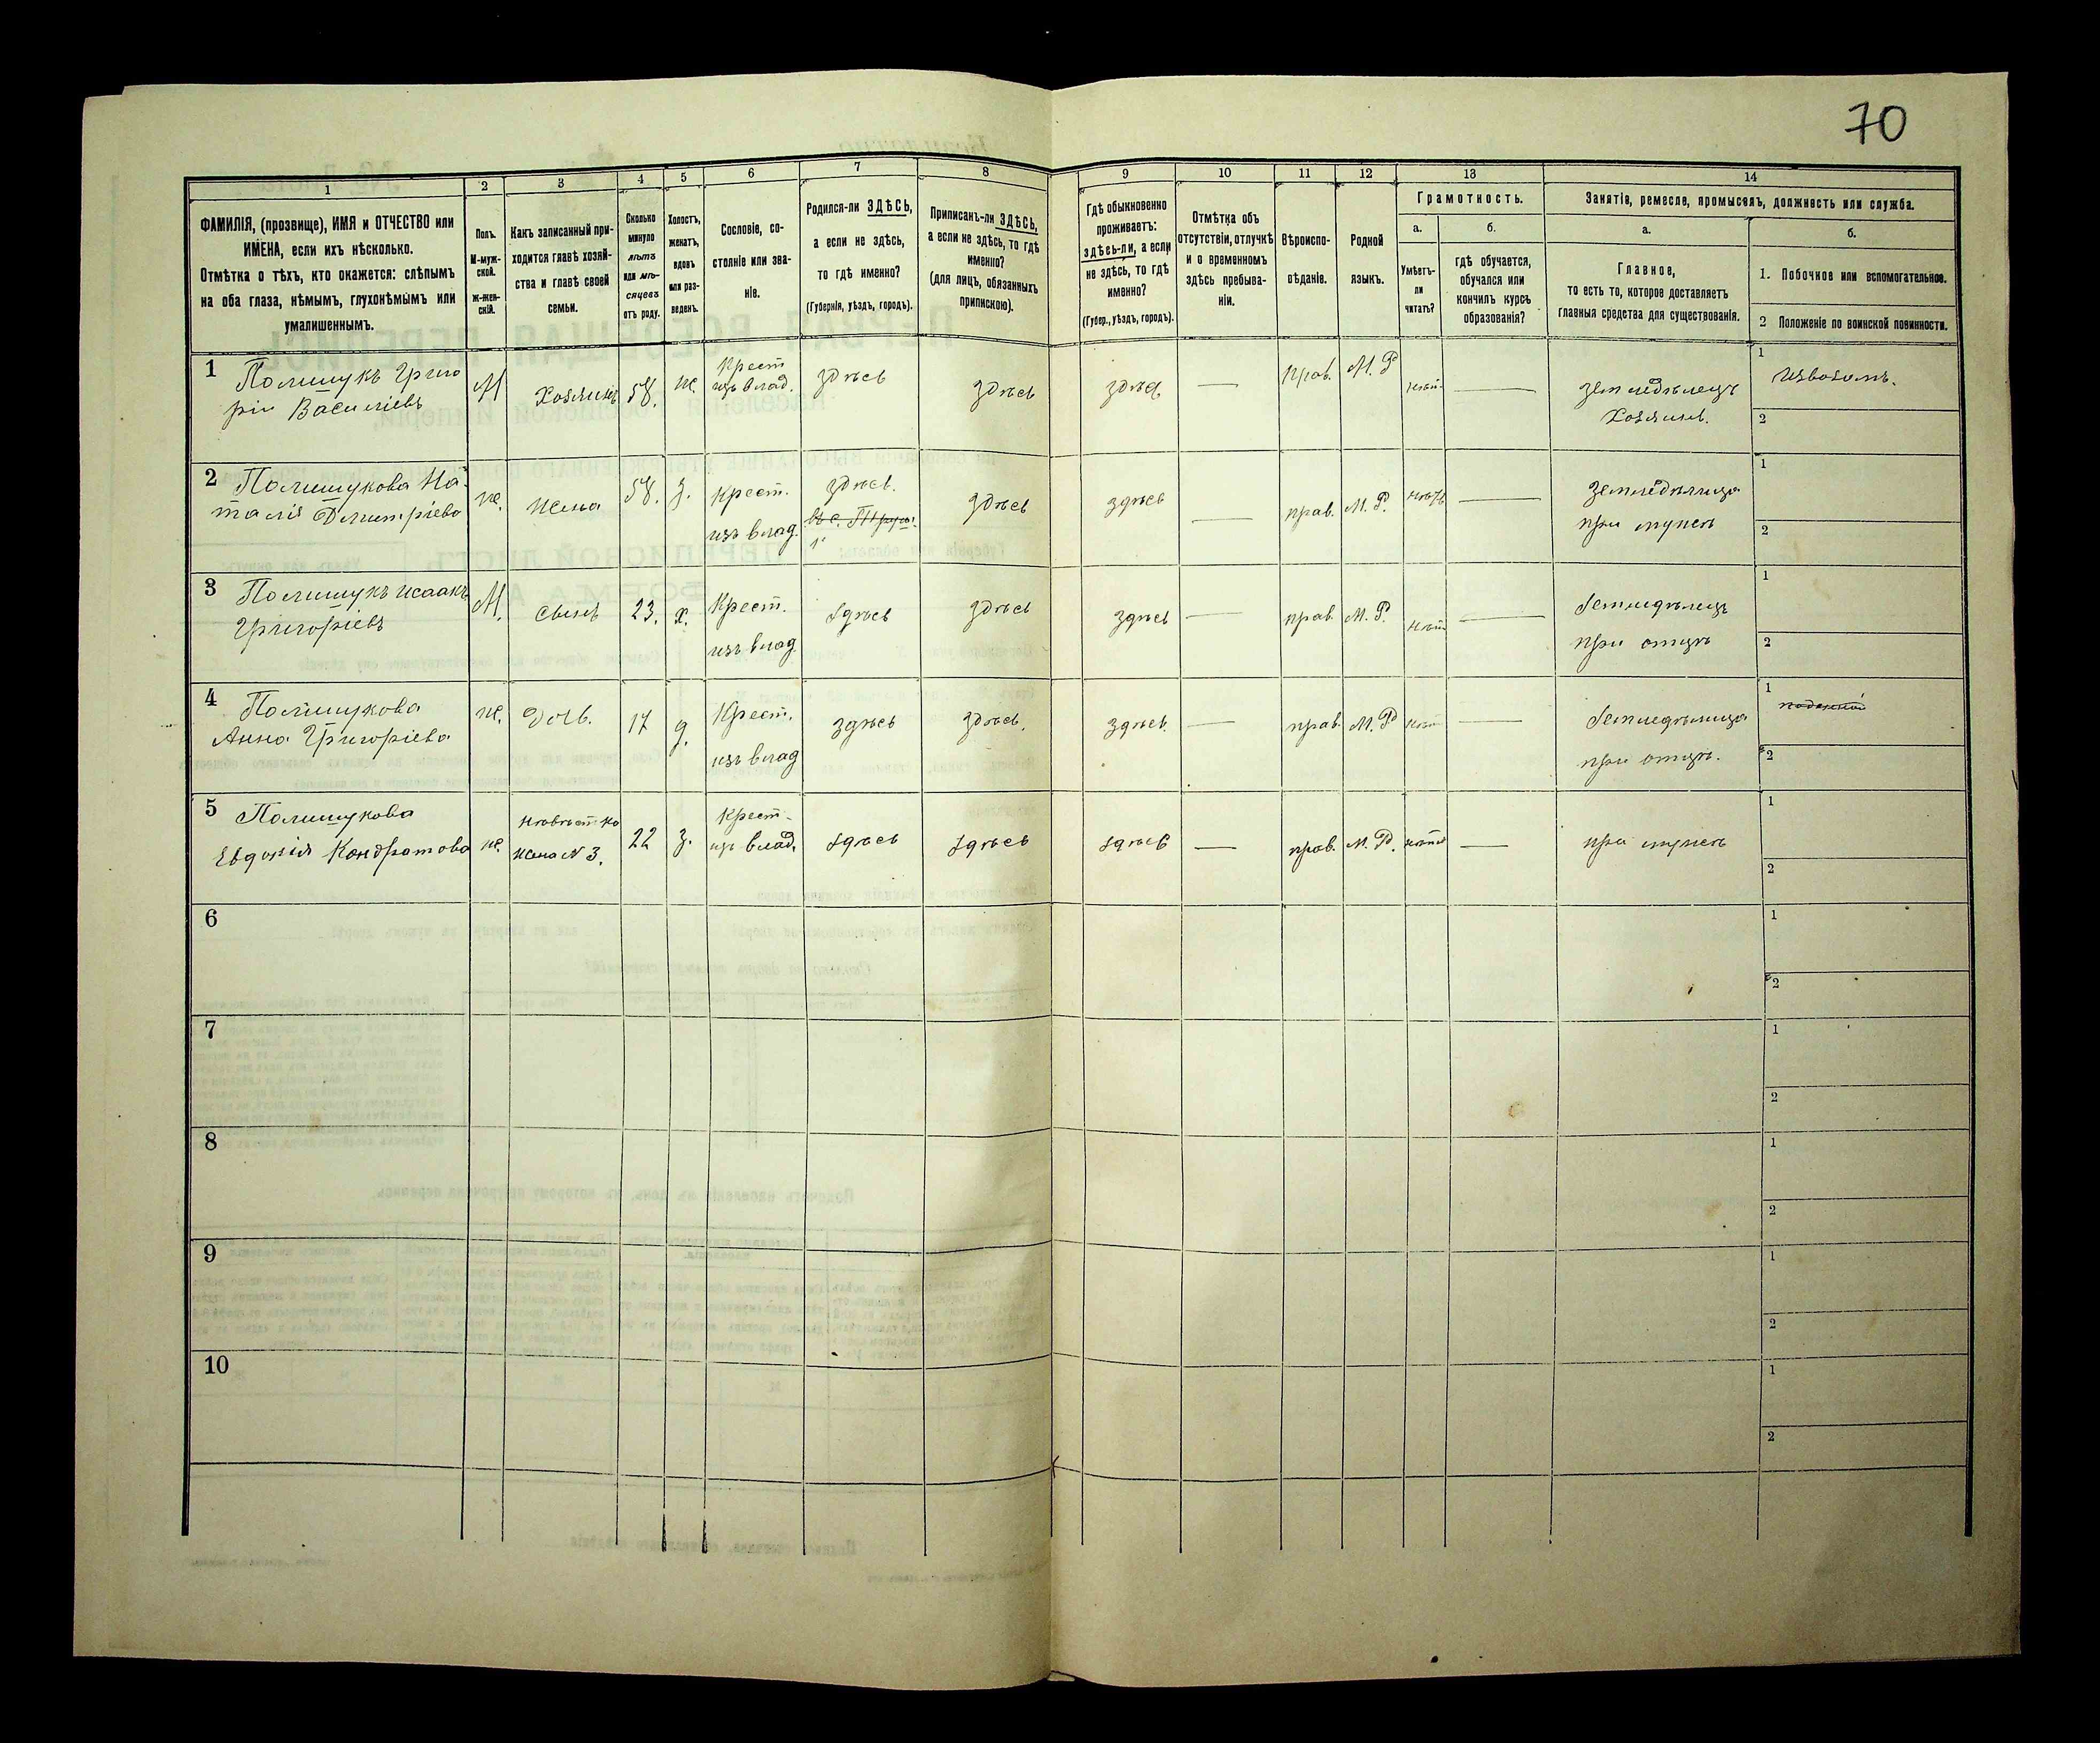 70
1
2
3
4
5
6
7
8
9
10
11
12
13
14
ФАМИЛІЯ, (прозвище), ИМЯ и ОТЧЕСТВО или
ИМЕНА, если ихъ нѣсколько.
Отмѣтка о тѣхъ, кто окажется: слѣпымъ
на оба глаза, нѣмымъ, глухонѣмымъ или
умалишеннымъ.
Полъ.
М-муж-
ской.
ж-жен-
скій.
Какъ записанный при-
ходится главѣ хозяй-
ства и главѣ своей
семьи.
Сколько
минуло
лѣтъ
или мѣ-
сяцевъ
отъ роду.
Холостъ,
женатъ,
вдовъ
или раз-
веденъ.
Сословіе, со-
стояніе или зва-
ніе.
Родился-ли ЗДѢСЬ,
а если не здѣсь,
то гдѣ именно?
(Губернія, уѣздъ, городъ).
Приписанъ-ли ЗДѢСЬ,
а если не здѣсь, то гдѣ
именно?
(для лицъ, обязанныхъ
припискою).
Гдѣ обыкновенно
проживаетъ:
здѣсь-ли, а если
не здѣсь, то гдѣ
именно?
(Губер., уѣздъ, городъ).
Отмѣтка объ
отсутствіи, отлучкѣ
и о временномъ
здѣсь пребыва-
ніи.
Вѣроиспо-
вѣданіе.
Родной
языкъ.
Грамотность.
а.
Умѣетъ-
ли
читать?
б.
гдѣ обучается,
обучался или
кончилъ курсъ
образованія?
Занятія, ремесле, промыселъ, должность или служба.
а.
Главное,
то есть то, которое доставляетъ
главныя средства для существованія.
б.
1. Побочное или вспомогательное.
2 Положеніе по воинской повинности.
1 Полищукъ Григо
рій Василіевъ
М
Хозяинъ
58.
ж.
Крест
изъ влад.
здѣсь
здѣсь
здѣсь
—
прав.
М. Р
нѣт
—
земледѣлецъ
Хозяинъ.
1 Извозомъ.
2
2 Полищукова На-
талія Дмитріева
ж.
Жена
58.
з.
Крест.
изъ влад.
здѣсь.
здѣсь
здѣсь
—
прав.
М. Р.
нѣтъ
—
земледѣлица
при мужѣ
1
2
3 Полищукъ Исаакъ
Григоріевъ
М.
сынъ
23.
х.
Крест.
изъ влад.
здѣсь
здѣсь
здѣсь
—
прав.
М. Р.
нѣт
—
Земледѣлецъ
при отцѣ
1
2
4 Полищукова
Анна Григоріева
ж.
дочь.
17
д.
Крест.
изъ влад
здѣсь
здѣсь.
здѣсь.
—
прав.
М. Р
нѣт
—
Земледѣлица
при отцѣ.
1
2
5 Полищукова
Евдокія Кондратова
ж.
невѣстка
жена N 3.
22
з.
Крест-
изъ влад.
здѣсь
здѣсь
здѣсь
—
прав.
М. Р.
нѣтъ
—
при мужѣ
1
2
6
1
2
7
1
2
8
1
2
9
1
2
10
1
2